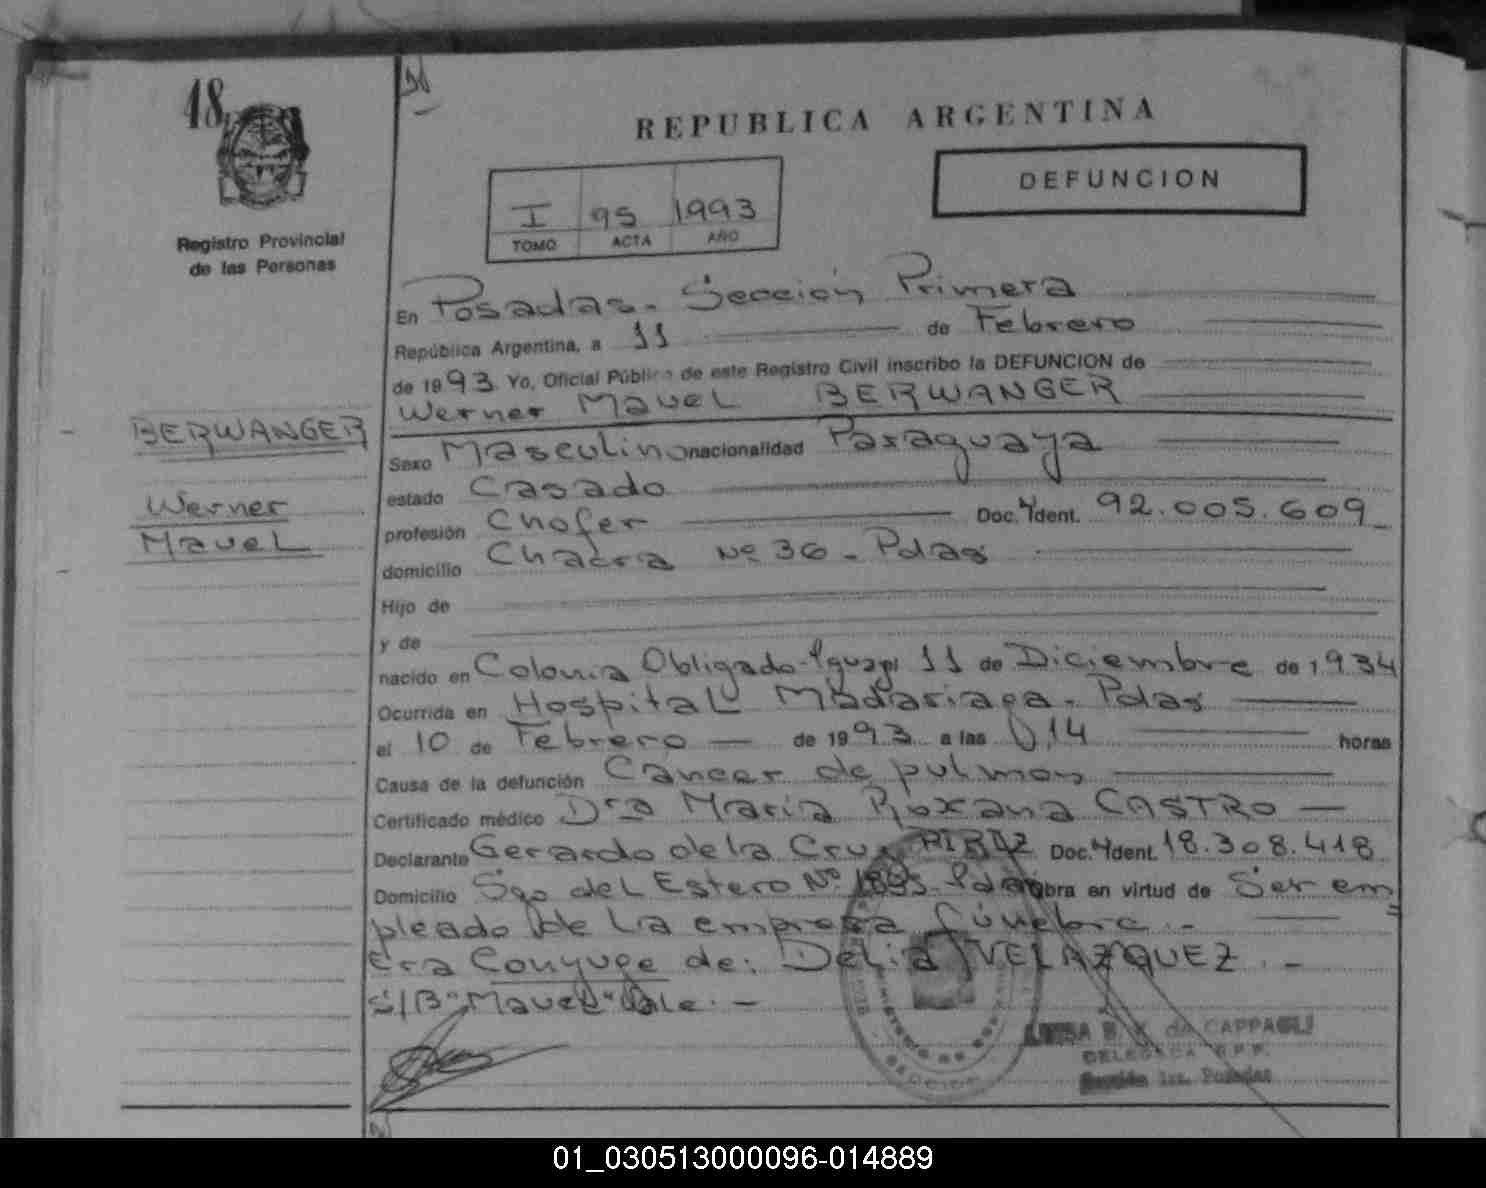 18
REPUBLICA ARGENTINA
DEFUNCION
I 95 1993
TOMO ACTA AÑO
Registro Provincial
de las Personas
En Posadas - Sección Primera
República Argentina, a 11 de Febrero
de 1993. Yo, Oficial Público de este Registro Civil inscribo la DEFUNCION de
Werner Mauel BERWANGER
BERWANGER
Werner
Mauel
Sexo Masculino nacionalidad Paraguaya
estado Casado
profesión Chofer Doc. Ident. 92.005.609
domicilio Chacra Nº 36 - Pdas
Hijo de
y de
nacido en Colonia Obligado - 11 de Diciembre de 1934
Ocurrida en Hospital Madariaga - Pdas
el 10 de Febrero de 1993 a las 0,14 horas
Causa de la defunción Cáncer de pulmon
Certificado médico Dra María Roxana CASTRO
Declarante Gerardo de la Cruz Doc. Ident. 18.308.418
Domicilio Sgo del Estero Nº Pdas Obra en virtud de Ser em=
pleado de la empresa fúnebre.-
Era Conyuge de: Delia VELAZQUEZ.-
S/B "Mauel" Vale.-
DE CAPPAGLI
DELEGADA R.P.P.
Sección 1ra. Posadas
01_030513000096-014889